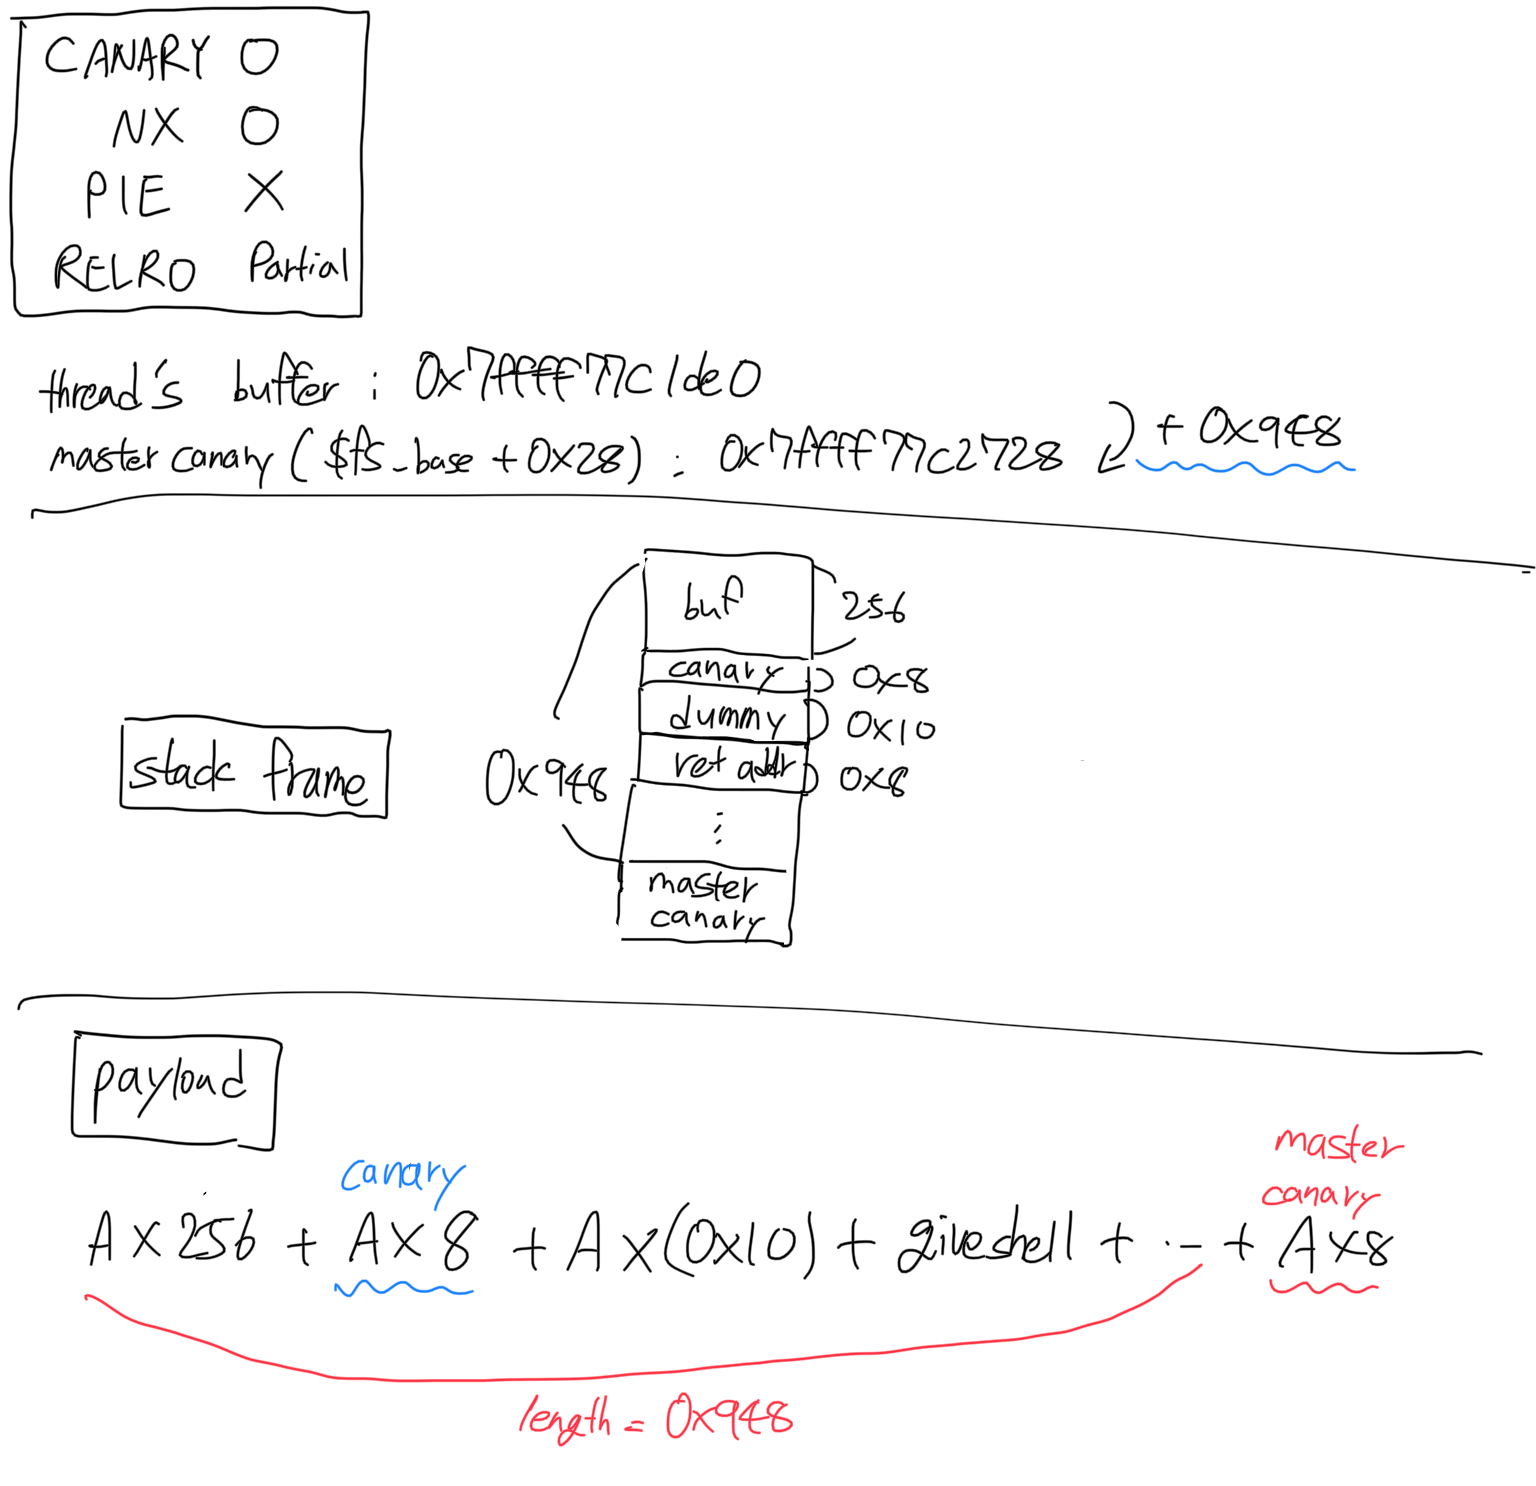 CANARY O
NX O
PIE X
RELRO Partial
thread's buffer : 0x7ffff77c1de0
master canary ($fs_base + 0x28) : 0x7ffff77c2728 + 0x948
buf 256
canary 0x8
dummy 0x10
stack frame 0x948 ret addr 0x8
⋮
master
canary
payload
canary master
canary
A X 256 + A X 8 + A X (0x10) + giveshell + ... + A X 8
length = 0x948